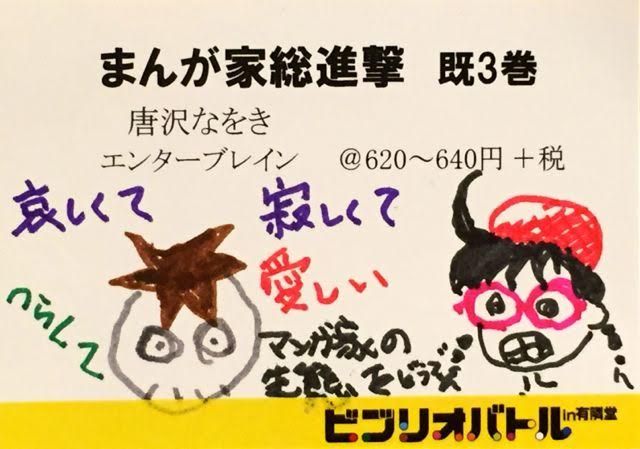 まんが家総進撃 既3巻
唐沢なをき
エンターブレイン @620～640円+税
哀しくて 寂しくて
つらくて 愛しい
マンガ家の
生態をどうぞ
ビブリオバトルin有隣堂